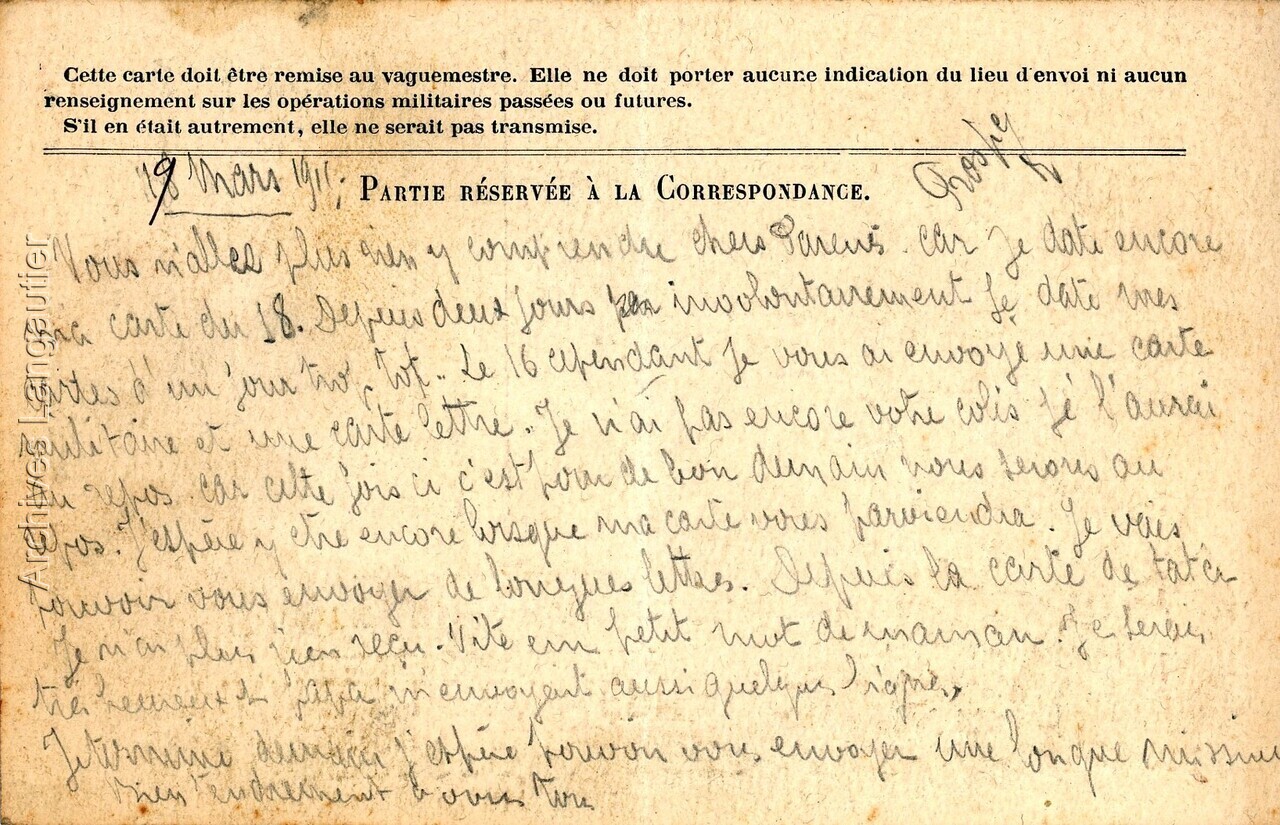 Cette carte doit être remise au vaguemestre. Elle ne doit porter aucune indication du lieu d'envoi ni aucun
renseignement sur les opérations militaires passées ou futures.
S'il en était autrement, elle ne serait pas transmise.
Mars
PARTIE RÉSERVÉE À LA CORRESPONDANCE.
Vous n'allez plus rien y comprendre chers Parents car je date encore
ma carte du 18. Depuis deux jours involontairement je date mes
cartes d'un jour trop tot. Le 16 cependant je vous ai envoyé une carte
militaire et une carte lettre. Je n'ai pas encore votre colis je l'aurai
au repos car cette fois ci c'est pour de bon demain nous serons au
repos. J'espère y etre encore lorsque ma carte vous parviendra. Je vais
pouvoir vous envoyer de longues lettres. Depuis la carte de tata
Je n'ai plus rien reçu. Vite un petit mot de maman. Je serais
très heureux si papa m'envoyait aussi quelques lignes.
Je termine demain j'espère pouvoir vous envoyer une longue
Bien tendrement à vous tous
Archives Langautier